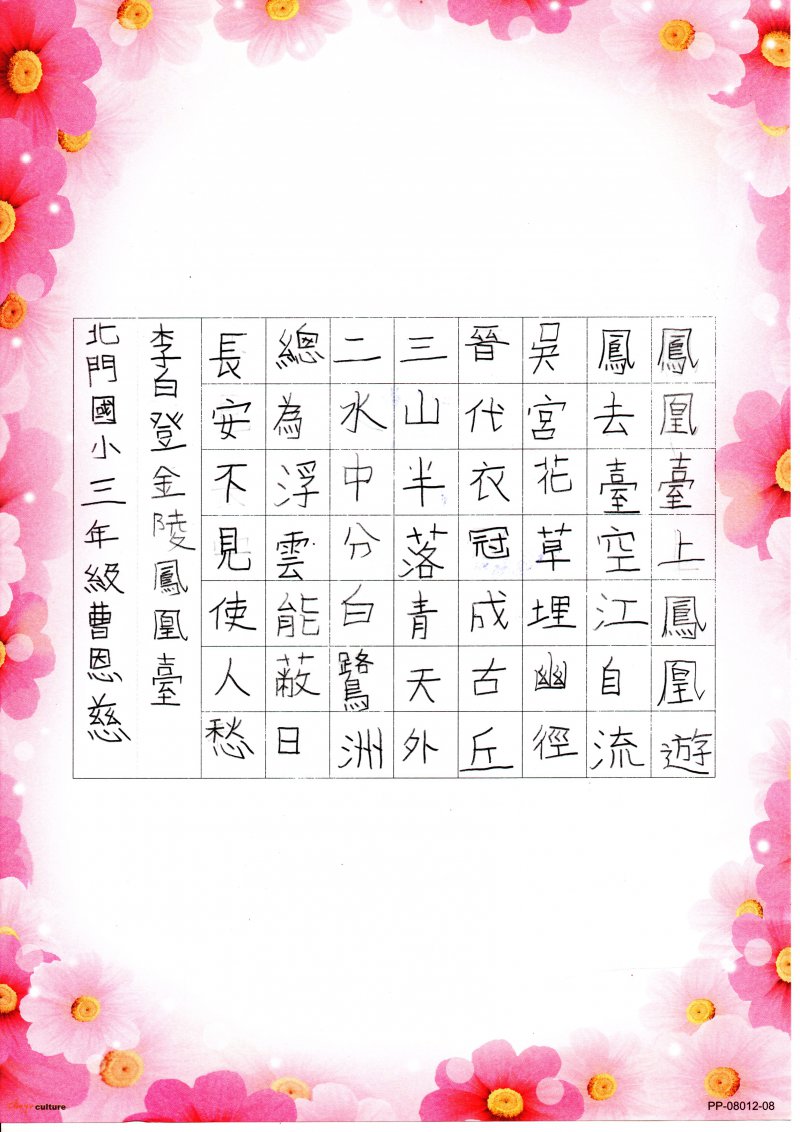 鳳凰臺上鳳凰遊
鳳去臺空江自流
吳宮花草埋幽徑
晉代衣冠成古丘
三山半落青天外
二水中分白鷺洲
總為浮雲能蔽日
長安不見使人愁
李白登金陵鳳凰臺
北門國小三年級曹恩慈
culture
PP-08012-08